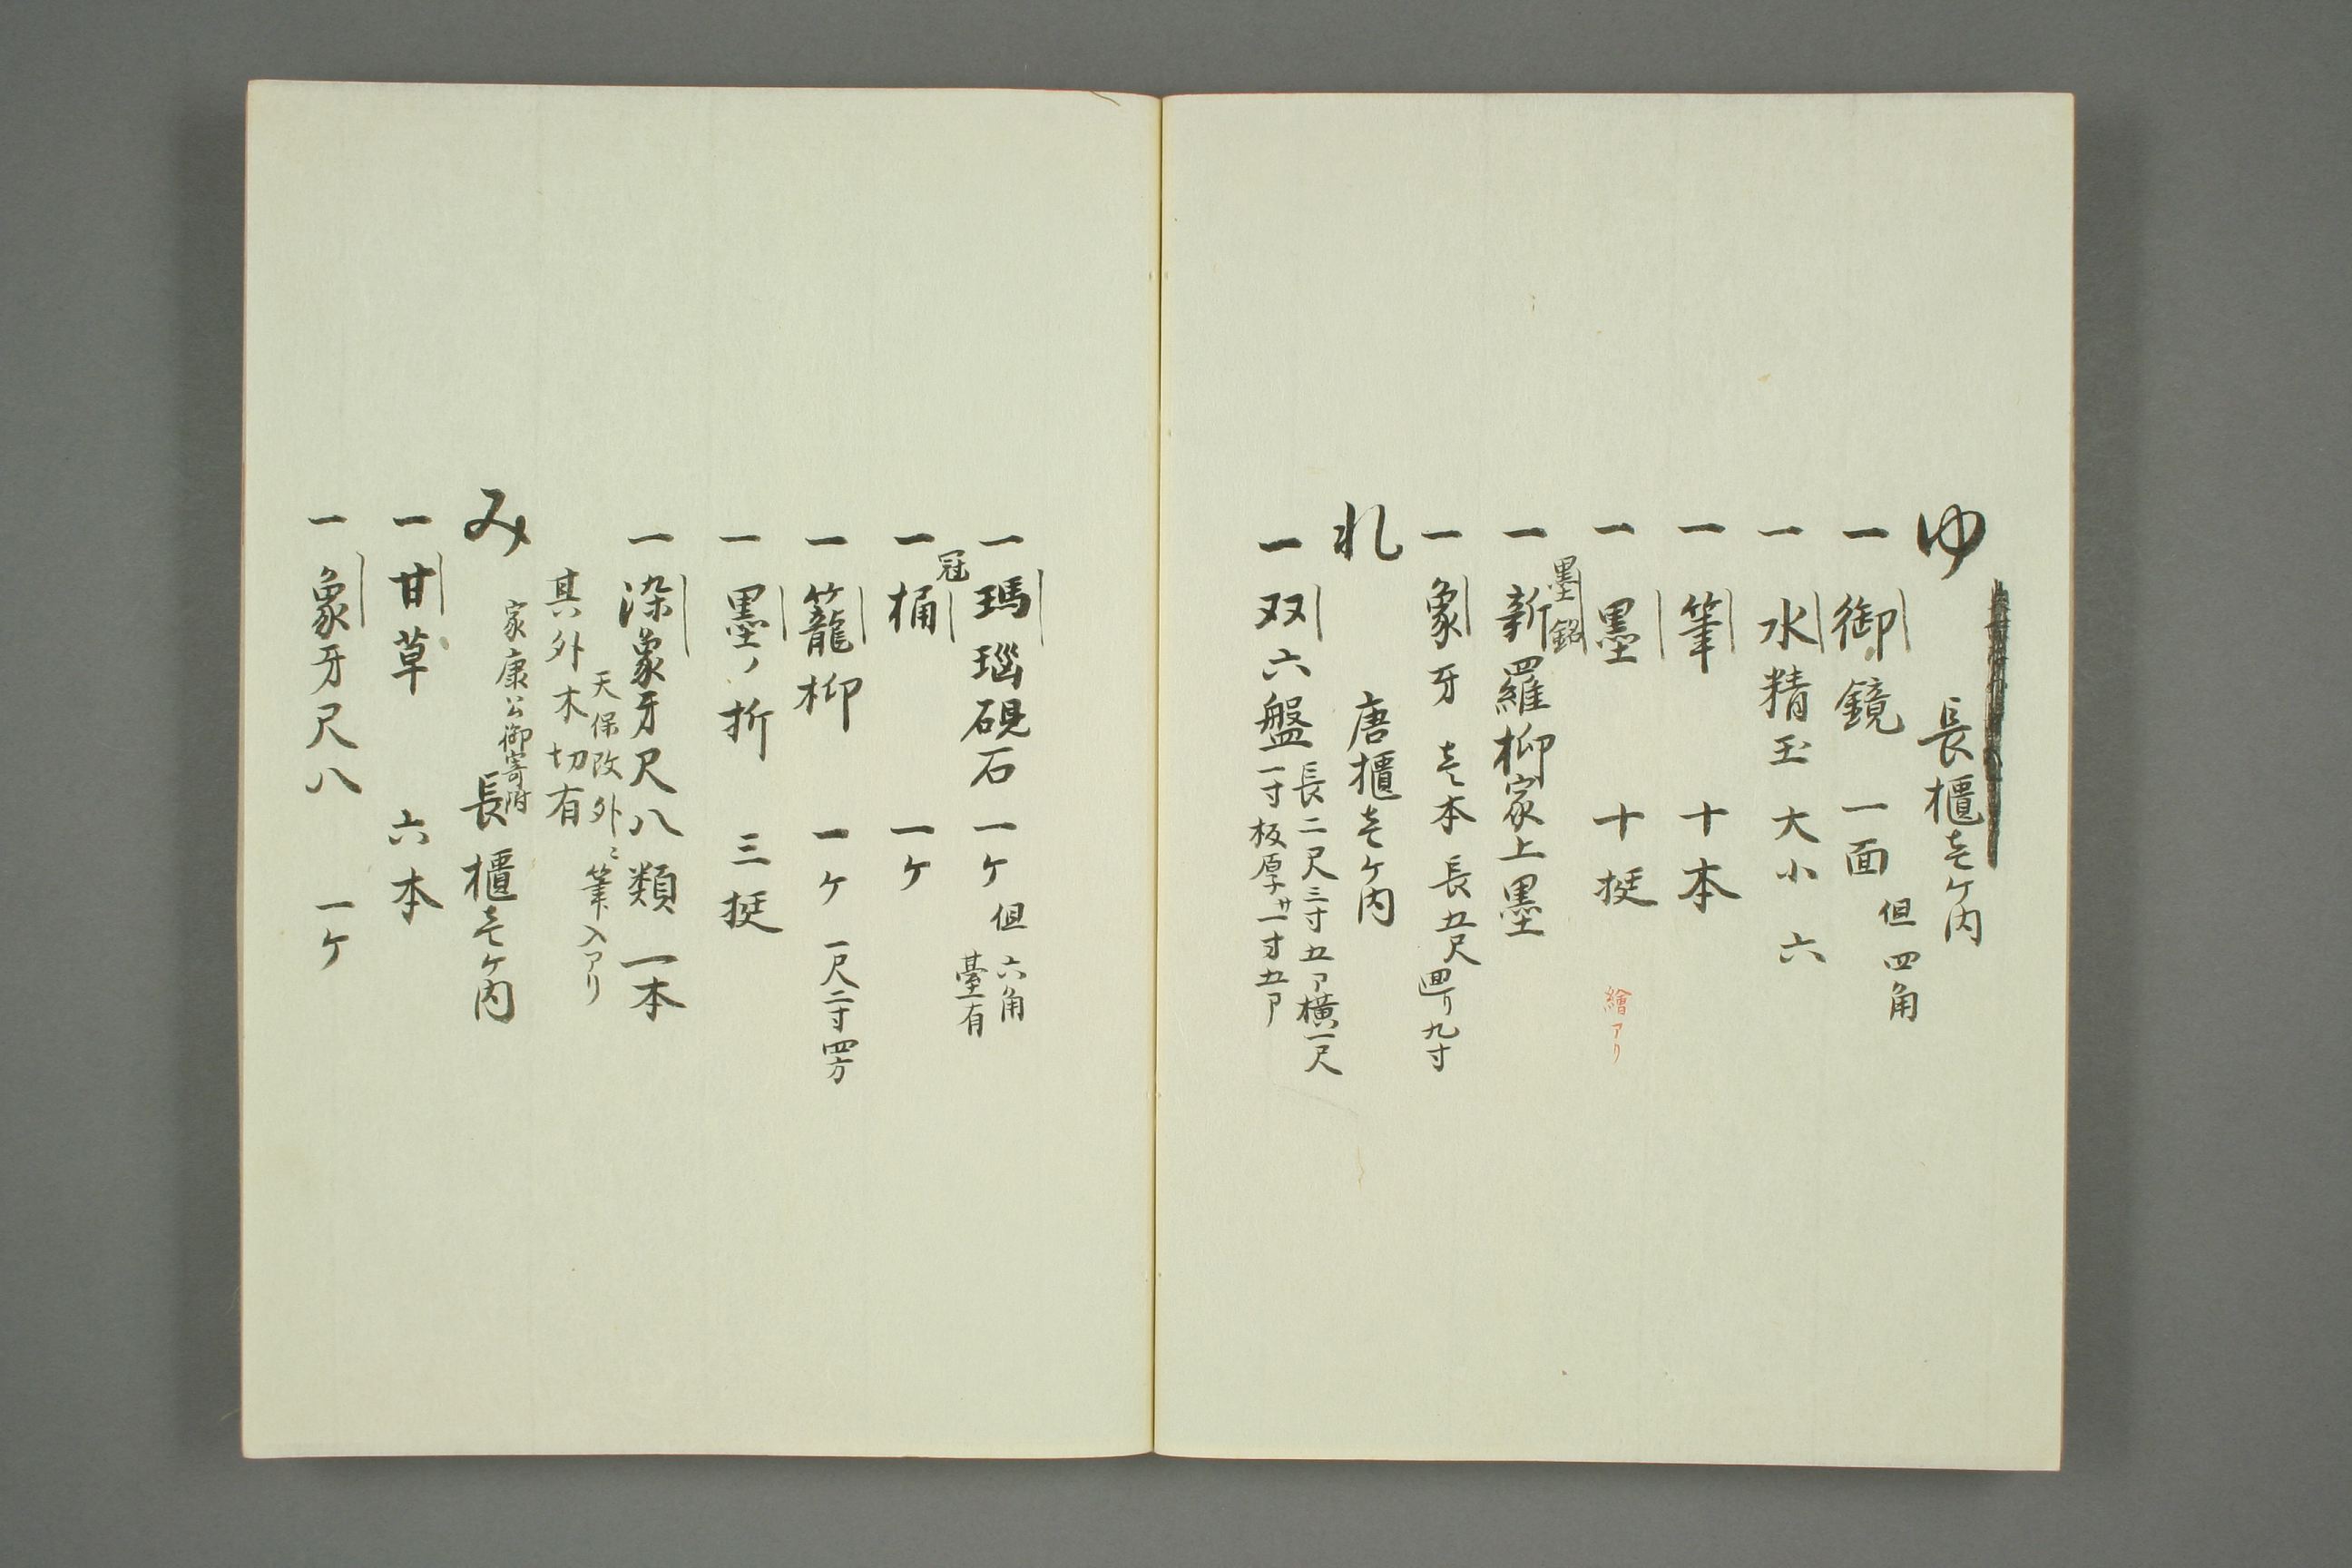 ゆ　長櫃壱ケ内
一御鏡　一面　但四角
一水精玉　大小　六
一筆　十本
一墨　十挺　繪アリ
墨銘
一新羅柳家上墨
一象牙　壱本　長五尺　廻リ九寸
れ　唐櫃壱ケ内
一双六盤　長二尺三寸五ア横一尺
一寸板厚サ一寸五ア
一瑪瑙硯石　一ケ　但六角
臺有
冠
一桶　一ケ
一籠柳　一ケ　一尺二寸四方
一墨ノ折　三挺
一染象牙尺八類　一本
天保改外ニ筆入アリ
其外木切有
家康公御寄附
み　長櫃壱ケ内
一甘草　六本
一象牙尺八　一ケ